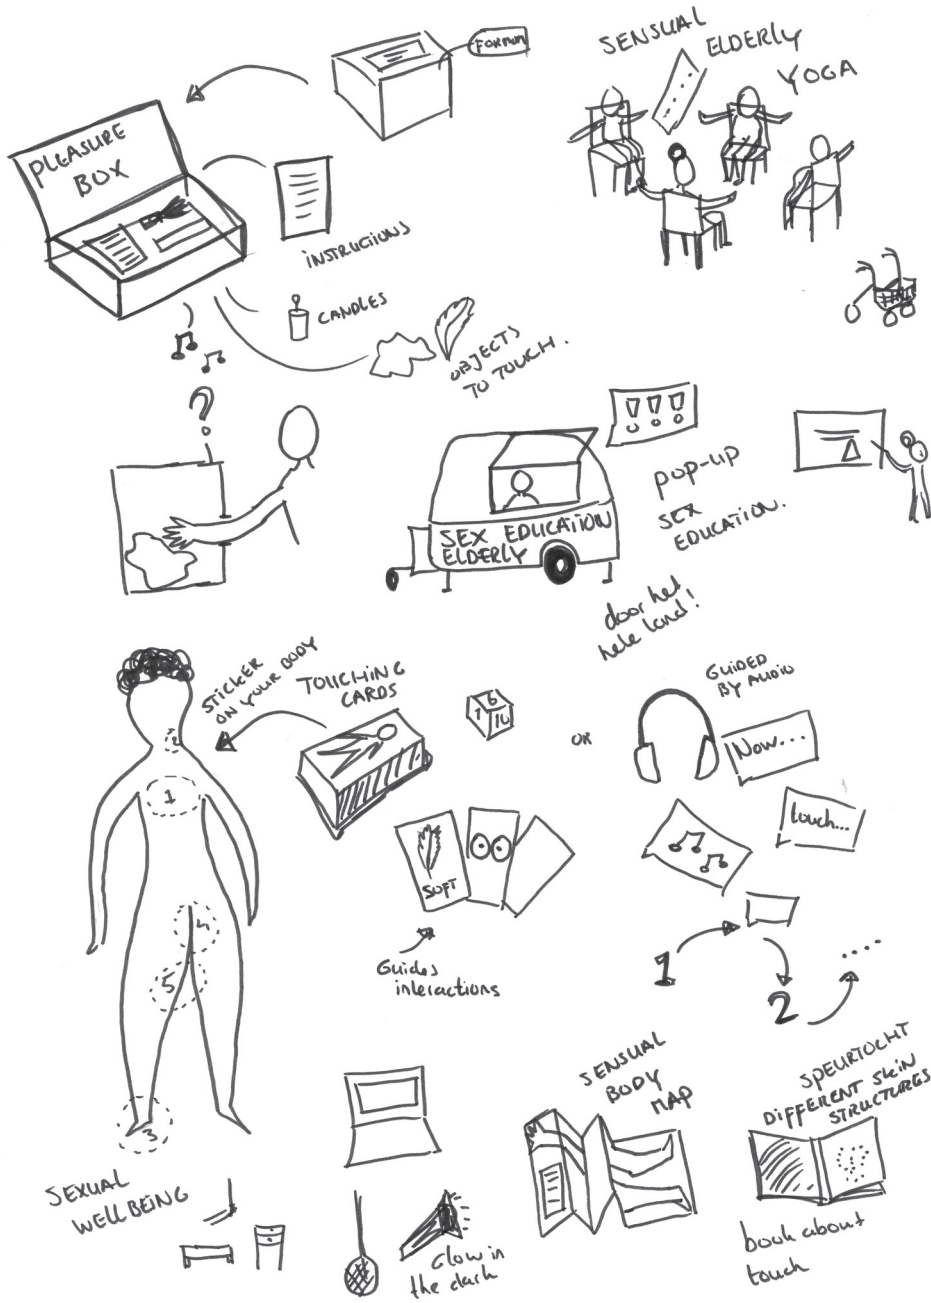 PLEASURE
BOX
INSTRUCTIONS
CANDLES
OBJECTS
TO TOUCH.
SENSUAL
ELDERLY
YOGA
?
! ! !
SEX EDUCATION
ELDERLY
pop-up
SEX
EDUCATION.
door het
hele land!
STICKER
ON YOUR BODY
TOUCHING
CARDS
6
1 10
OR
GUIDED
BY AUDIO
Now...
touch...
2
1
4
5
3
SOFT
Guides
interactions
1
2
....
SEXUAL
WELLBEING
Glow in
the dark
SENSUAL
BODY
MAP
SPEURTOCHT
DIFFERENT SKIN
STRUCTURES
book about
touch